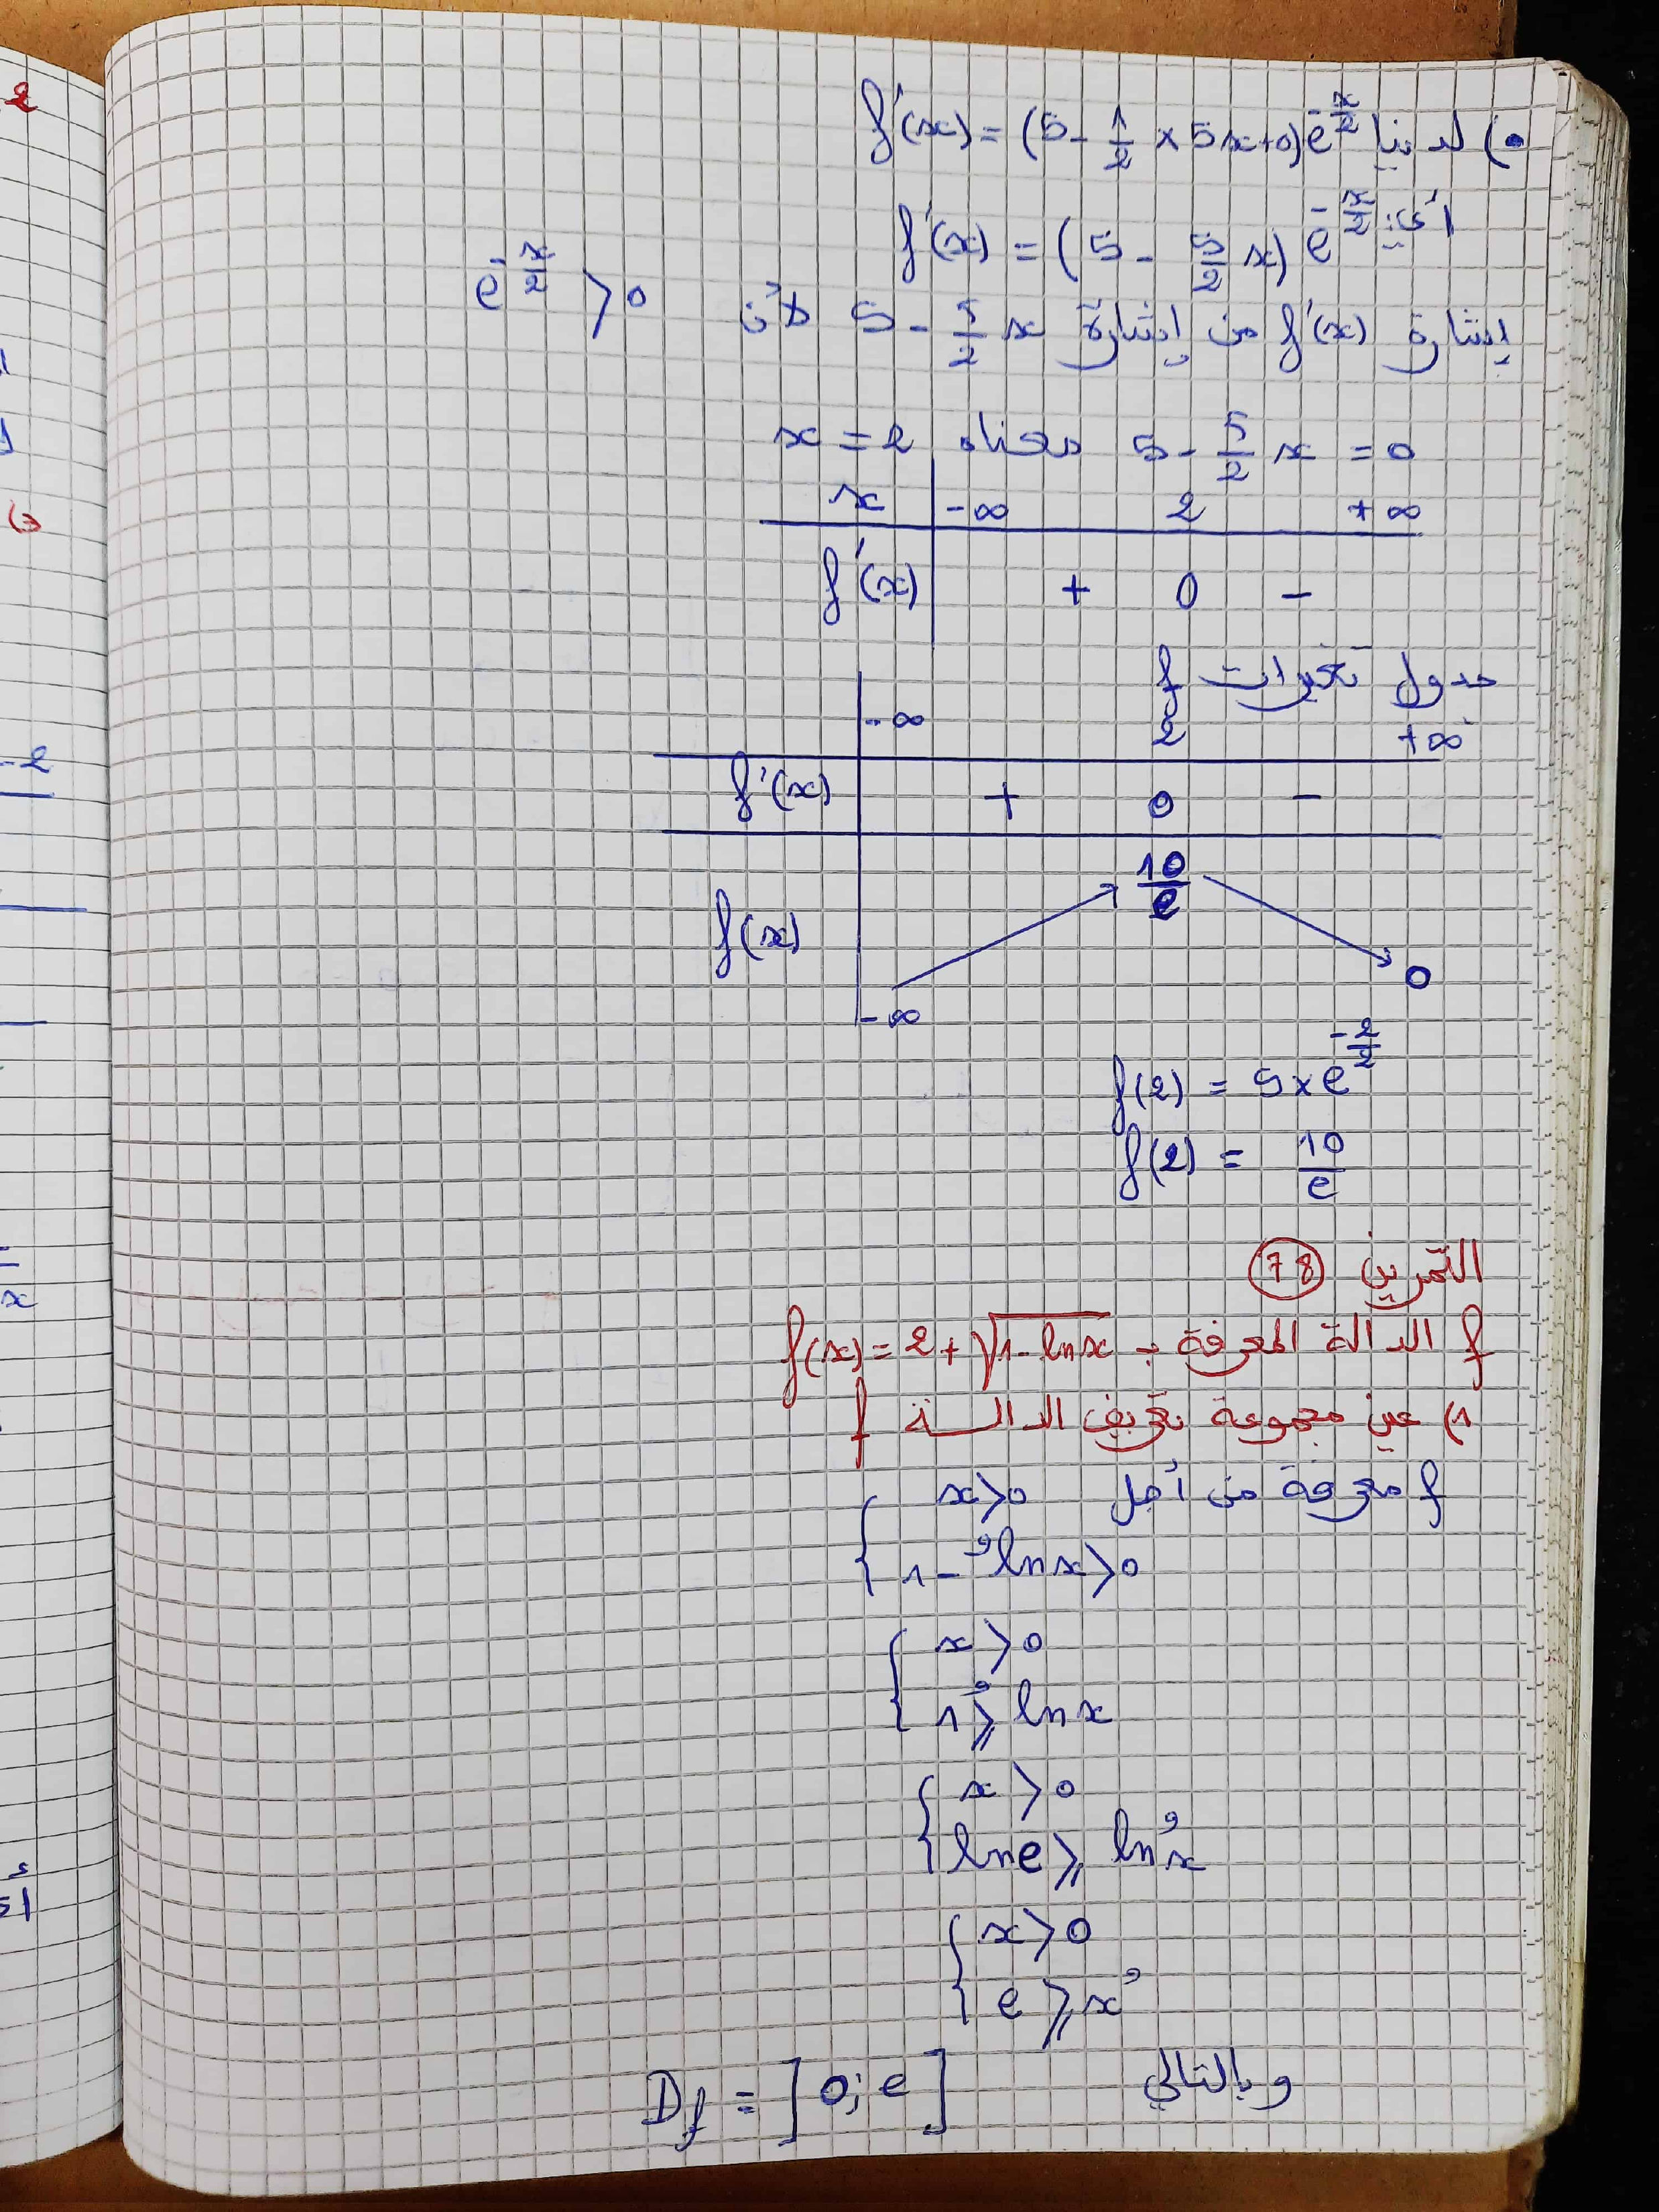 •) لدينا f'(x) = (5 - 1/2 × 5x + 0)e^(-x/2)
أي: f'(x) = (5 - 5/2 x) e^(-x/2)
إشارة f'(x) من إشارة 5 - 5/2 x لأن e^(-x/2) > 0
5 - 5/2 x = 0 معناه x = 2
x | -∞ 2 +∞
f'(x) | + 0 -
جدول تغيرات f
-∞ 2 +∞
f'(x) | + 0 -
10/e
f(x)
0
-∞
f(2) = 5 × e^(-2/2)
f(2) = 10/e
التمرين 78
f الدالة المعرفة بـ f(x) = 2 + √(1 - ln x)
1) عين مجموعة تعريف الدالة f
f معرفة من أجل { x > 0
و
1 - ln x > 0
{ x > 0
و
1 ⩾ ln x
{ x > 0
و
ln e ⩾ ln x
{ x > 0
و
e ⩾ x
وبالتالي Df = ]0; e]